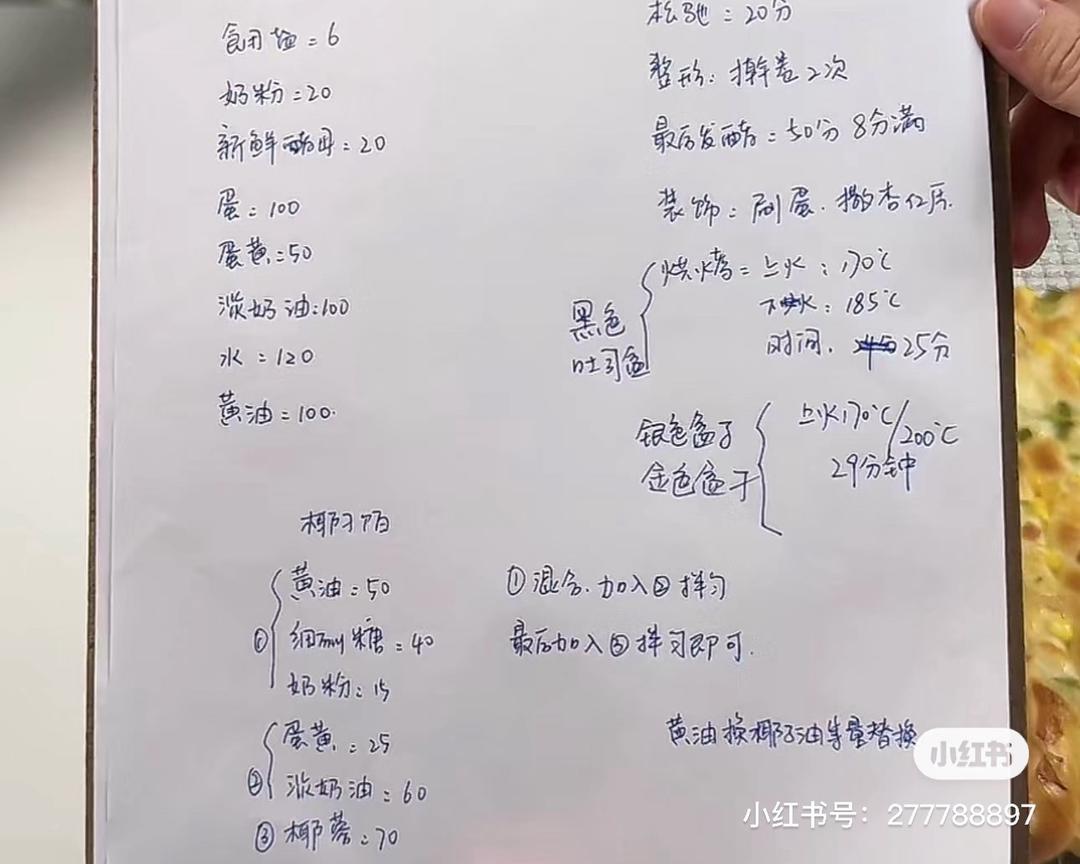 食用盐=6
奶粉=20
新鲜酵母=20
蛋=100
蛋黄=50
淡奶油:100
水=120
黄油=100.
松驰=20分
整形:擀卷2次
最后发酵=50分 8分满
装饰:刷蛋.撒杏仁片.
黑色
吐司盒
烘烤=上火:170℃
下火:185℃
时间. 25分
银色盒子
金色盒子
上火170℃/200℃
29分钟
椰子陷
① 黄油=50
细砂糖=40
奶粉=15
② 蛋黄=25
淡奶油=60
③椰蓉=70
①混合.加入②拌匀
最后加入③拌匀即可.
黄油换椰子油等量替换
小红书
小红书号:277788897